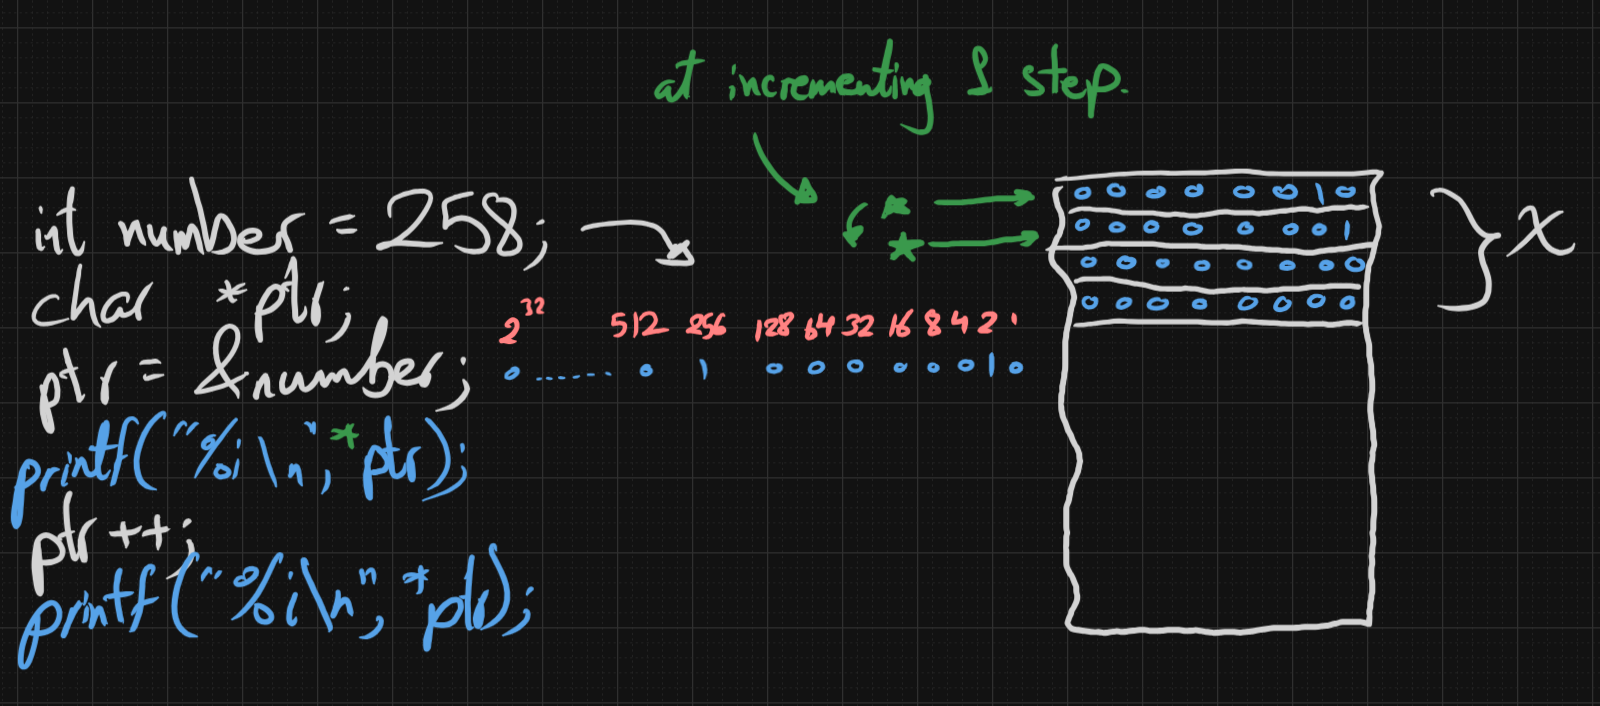 at incrementing 1 step.
int number = 258;
char *ptr;
ptr = &number;
printf("%i\n", *ptr);
ptr++;
printf("%i\n", *ptr);
2^32 512 256 128 64 32 16 8 4 2 1
0 ........ 0 1 0 0 0 0 0 0 1 0
0 0 0 0 0 0 1 0
0 0 0 0 0 0 0 1
0 0 0 0 0 0 0 0
0 0 0 0 0 0 0 0
X